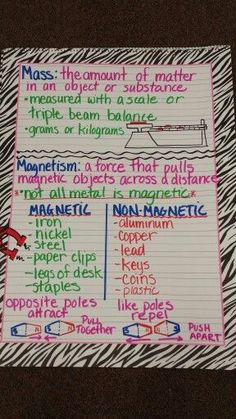 Mass: the amount of matter
in an object or substance
•measured with a scale or
triple beam balance
•grams or kilograms
Magnetism: a force that pulls
magnetic objects across a distance
*not all metal is magnetic*
MAGNETIC
-iron
-nickel
-steel
-paper clips
-legs of desk
-staples
NON-MAGNETIC
-aluminum
-copper
-lead
-keys
-coins
-plastic
opposite poles
attract
PULL
TOGETHER
like poles
repel
PUSH
APART